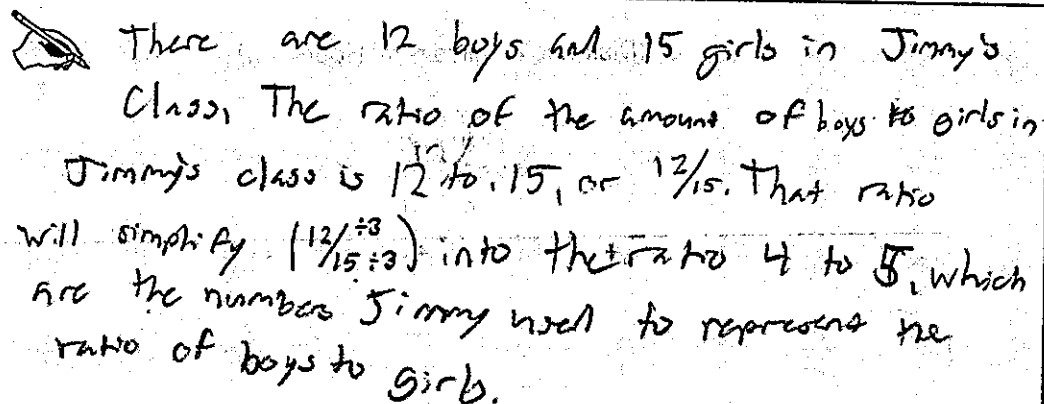 There are 12 boys and 15 girls in Jimmy's
Class, The ratio of the amount of boys to girls in
Jimmy's class is 12 to 15, or 12/15. That ratio
will simplify (12/15 ÷3 ÷3) into the ratio 4 to 5, which
are the numbers Jimmy used to represent the
ratio of boys to girls.